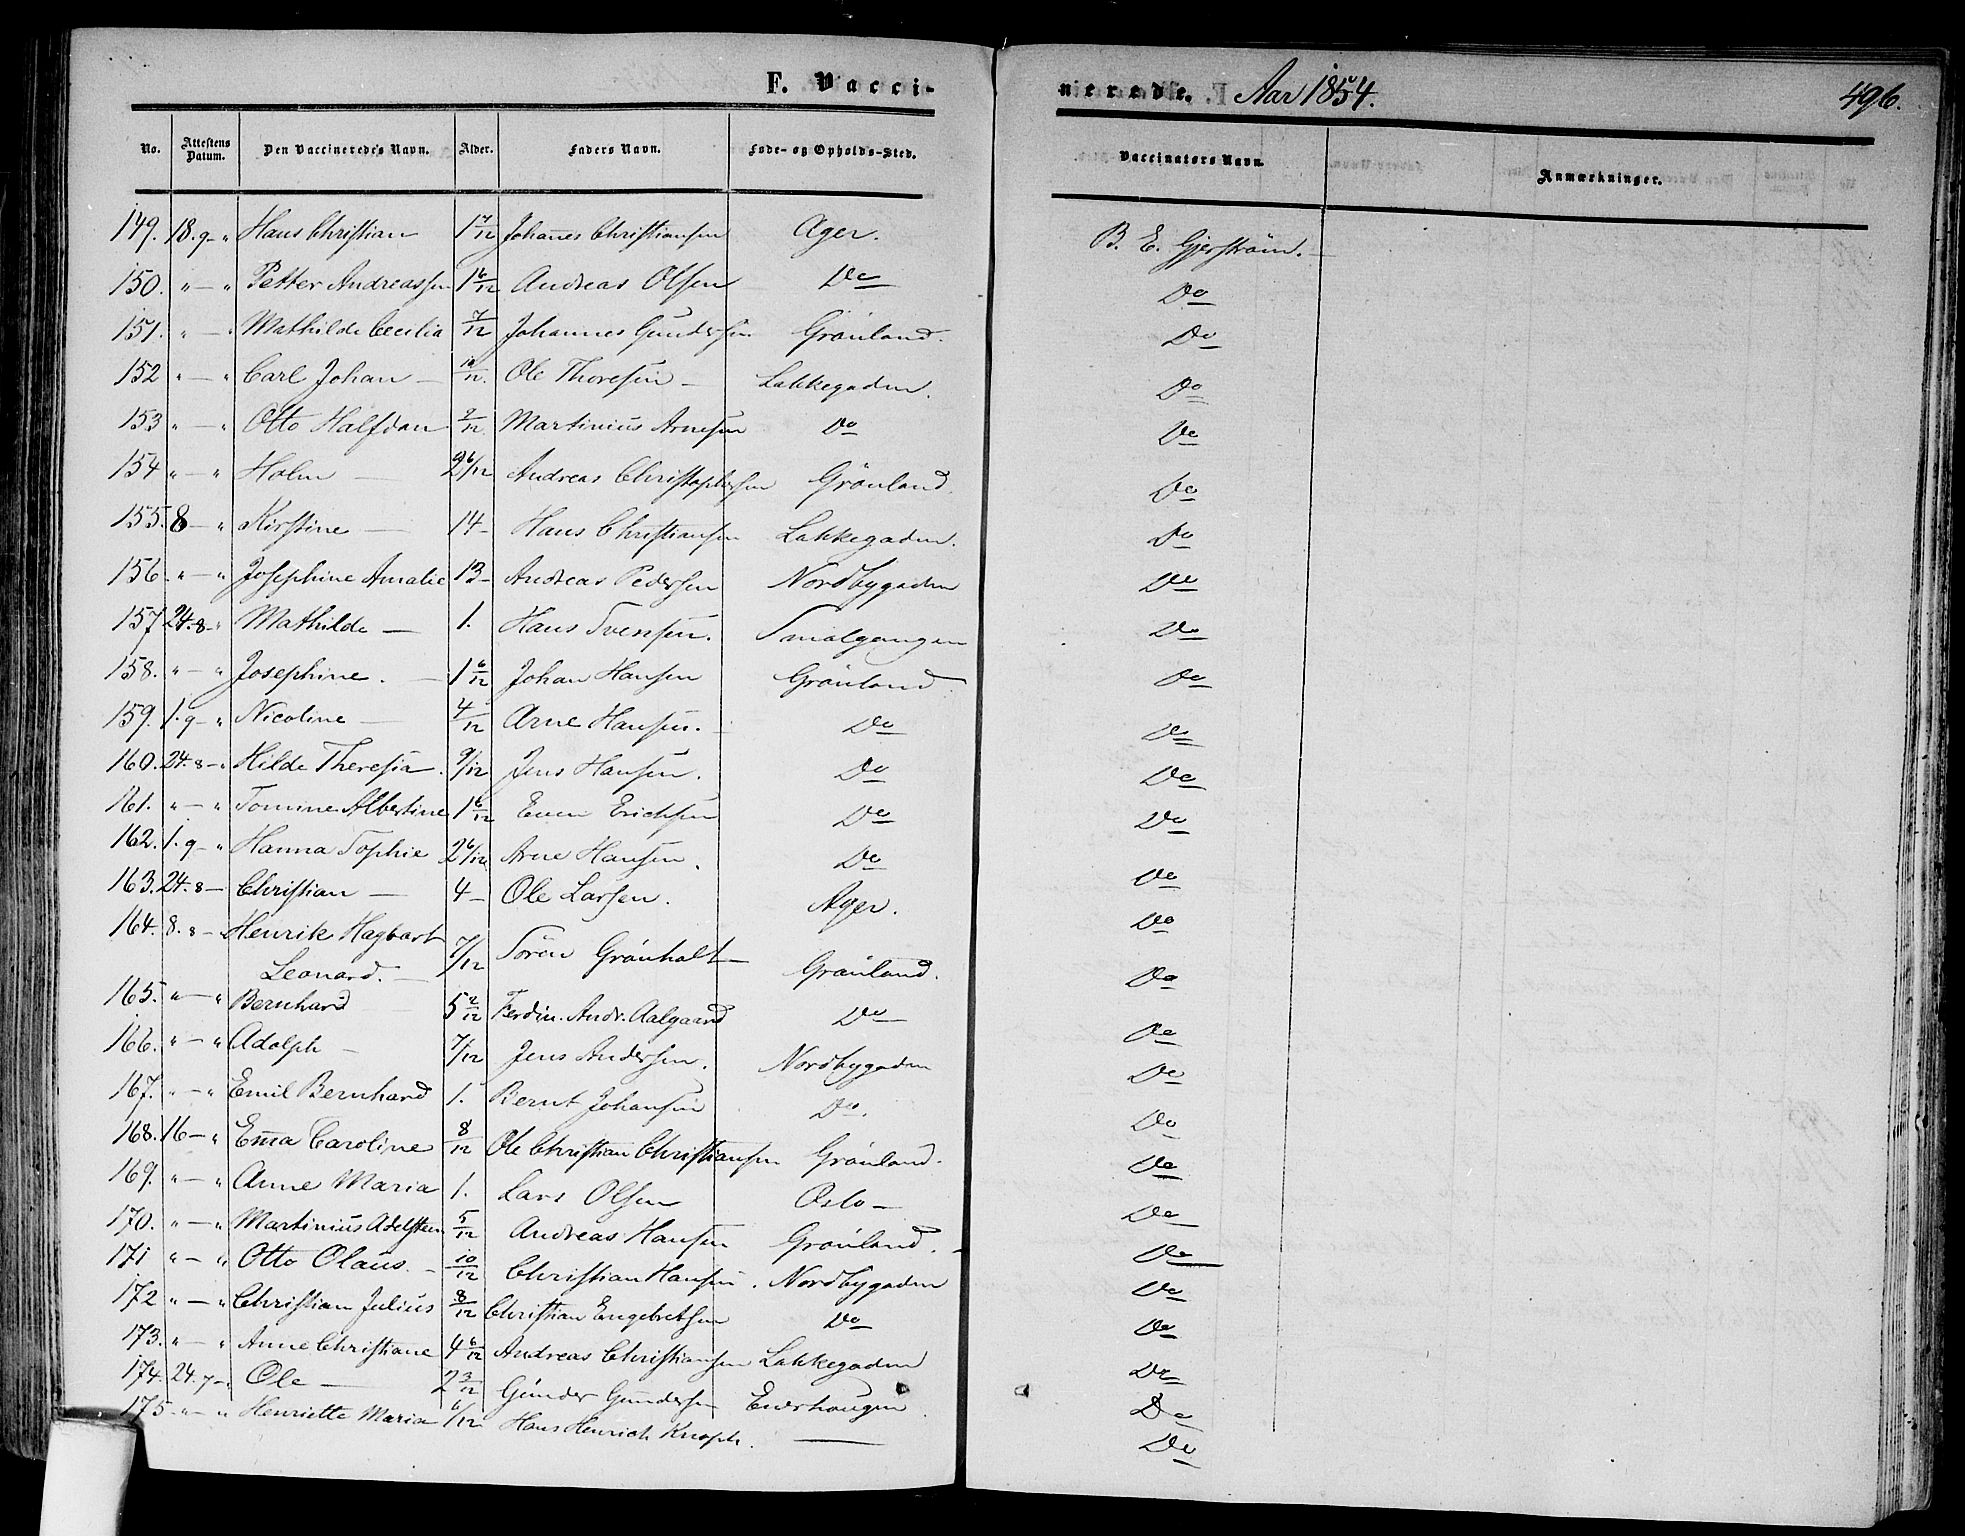 F. Vacci-
nerede. Aar 1854.
496.
No. Attestens Datum. Den Vaccineredes Navn. Alder. Faders Navn. Føde- og Opholds-Sted. Vaccinatørs Navn. Anmærkninger.
149. 18. 9 - " Hans Christian 1 7/12 Johannes Christiansen Ager. B. E. Gjerström.
150. " - " Petter Andreassen 1 6/12 Andreas Olsen Do Do
151. " - " Mathilde Cecilia 7/12 Johannes Gundersen Grönland. Do
152 " - " Carl Johan - 10/12. Ole Thoresen - Lakkegaden. Do
153 " - " Otto Halfdan 9/12. Martinius Arnesen Do Do
154 " - " Holm - 2 6/12 Andreas Christophersen Grönland. Do
155. 8 - " Kirstine - 14 - Hans Christiansen Lakkegaden. Do
156. " - " Josephine Amalie 13 - Andreas Pedersen Nordbygaden Do
157 24. 8 - " Mathilde - 1. Hans Svensen. Smalgangen Do
158. " - " Josephine. - 1 6/12 Johan Hansen Grönland. Do
159. 1. 9 - " Nicoline - 4/12 Arne Hansen. - Do Do
160. 24. 8 - " Hilde Theresia. 9/12 Jens Hansen. Do Do
161. " - " Tomine Albertine 1 6/12 Even Erichsen Do Do
162. 1. 9 - " Hanna Sophie 2 6/12 Arne Hansen. Do Do
163. 24. 8 - Christian - 4 - Ole Larsen. Ager. Do
164. 8. 8 - Henrik Hagbart
Leonard. - 7/12 Sören Grönholt - Grönland. Do
165. " - " Bernhard 5 2/12 Ferdin. Andr. Aalgaard Do Do
166. " - " Adolph - 7/12 Jens Andersen. Nordbygaden Do
167. " - " Emil Bernhard 1. Bernt Johansen Do. Do
168. 16 - " Em̄a Caroline 8/12 Ole Christian Christiansen Grönland. Do
169. " - " Anne Maria 1. Lars Olsen Oslo - Do
170. " - " Martinius Adelsteen 5/12 Andreas Hansen Grönland. - Do
171 " - " Otto Olaus. - 10/12 Christian Hansen. Nordbygaden Do
172 " - " Christian Julius 8/12 Christian Engebretsen Do Do
173. " - " Anne Christiane 4 6/12 Andreas Christiansen Lakkegaden Do
174. 24. 7 - " Ole - 2 3/12 Gunder Gundersen Enerhaugen Do
175 - " - " Henriette Maria 6/12 Hans Henrich Knoph. - Do